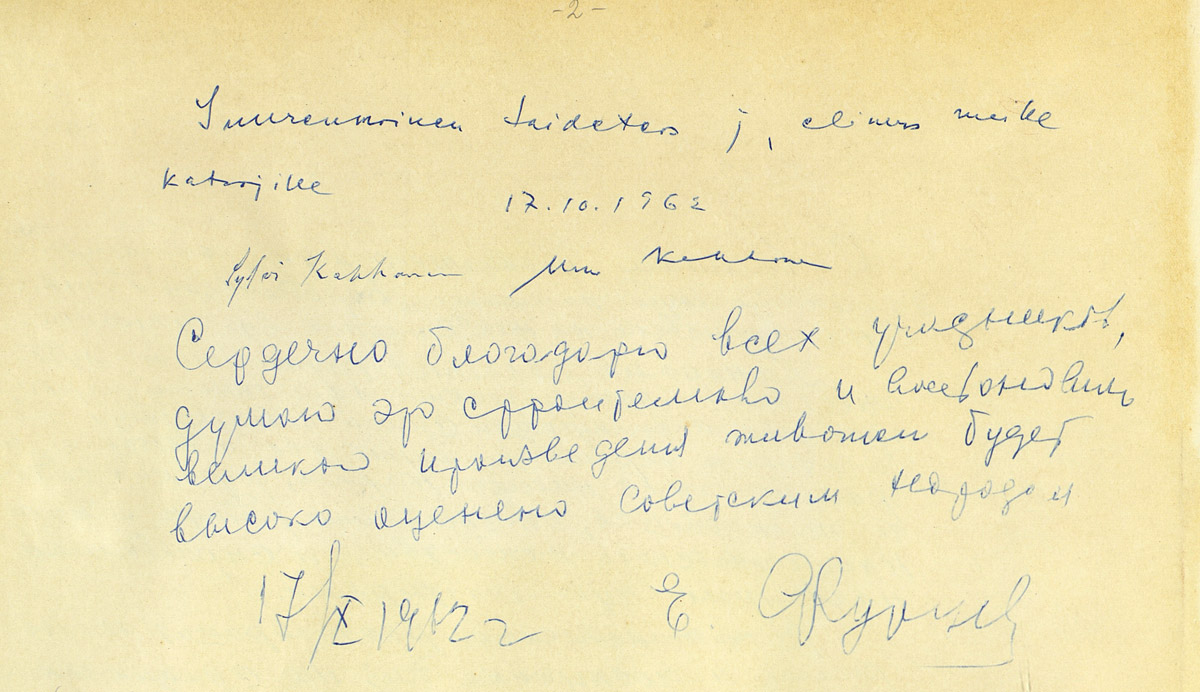 -2-
Suurenmoinen taidetaos j, elinis meille
katsojille
17.10.1962
Sylvi Kekkonen Urho Kekkonen
Сердечно благодарю всех участников,
думаю это строительство и
великого произведения живописи будет
высоко оценено Советским народом
17/X 1962 г Е. Фурцев